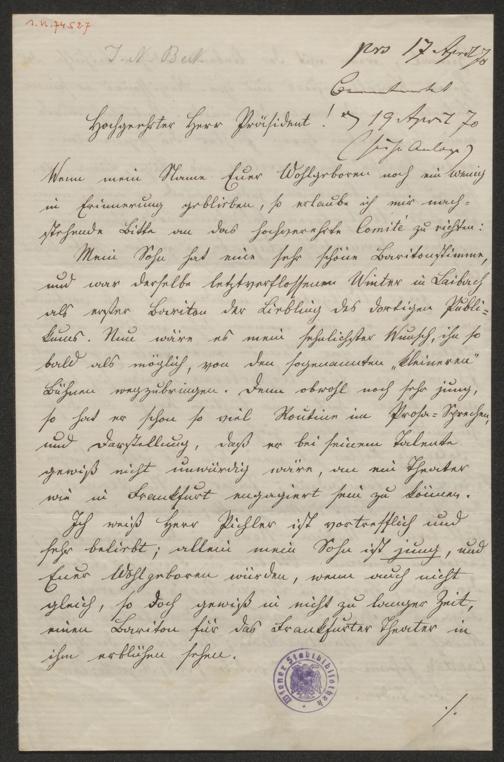 I.N. 74527
J. N. Beck
prs 17 April 70
Beantwortet
19 April 70
(siehe Anlage)
Hochgeehrter Herr Präsident!
Wenn mein Name Euer Wohlgeboren noch ein wenig
in Erinnerung geblieben, so erlaube ich mir nach=
stehende Bitte an das hochverehrte Comité zu richten:
Mein Sohn hat eine sehr schöne Baritonstimme,
und war derselbe letztverflossenen Winter in Laibach
als erster Bariton der Liebling des dortigen Publi=
kums. Nun wäre es mein sehnlichster Wunsch, ihn so
bald als möglich, von den sogenannten „kleineren"
Bühnen wegzubringen. Denn obwohl noch sehr jung,
so hat er schon so viel Routine im Prosa=Sprechen,
und Darstellung, daß er bei seinem Talente
gewiß nicht unwürdig wäre, an ein Theater
wie in Frankfurt engagiert sein zu können.
Ich weiß Herr Pichler ist vortrefflich und
sehr beliebt; allein mein Sohn ist jung, und
Euer Wohlgeboren würden, wenn auch nicht
gleich, so doch gewiß in nicht zu langer Zeit,
einen Bariton für das Frankfurter Theater in
ihm erblühen sehen.
Wiener Stadtbibliothek
./.